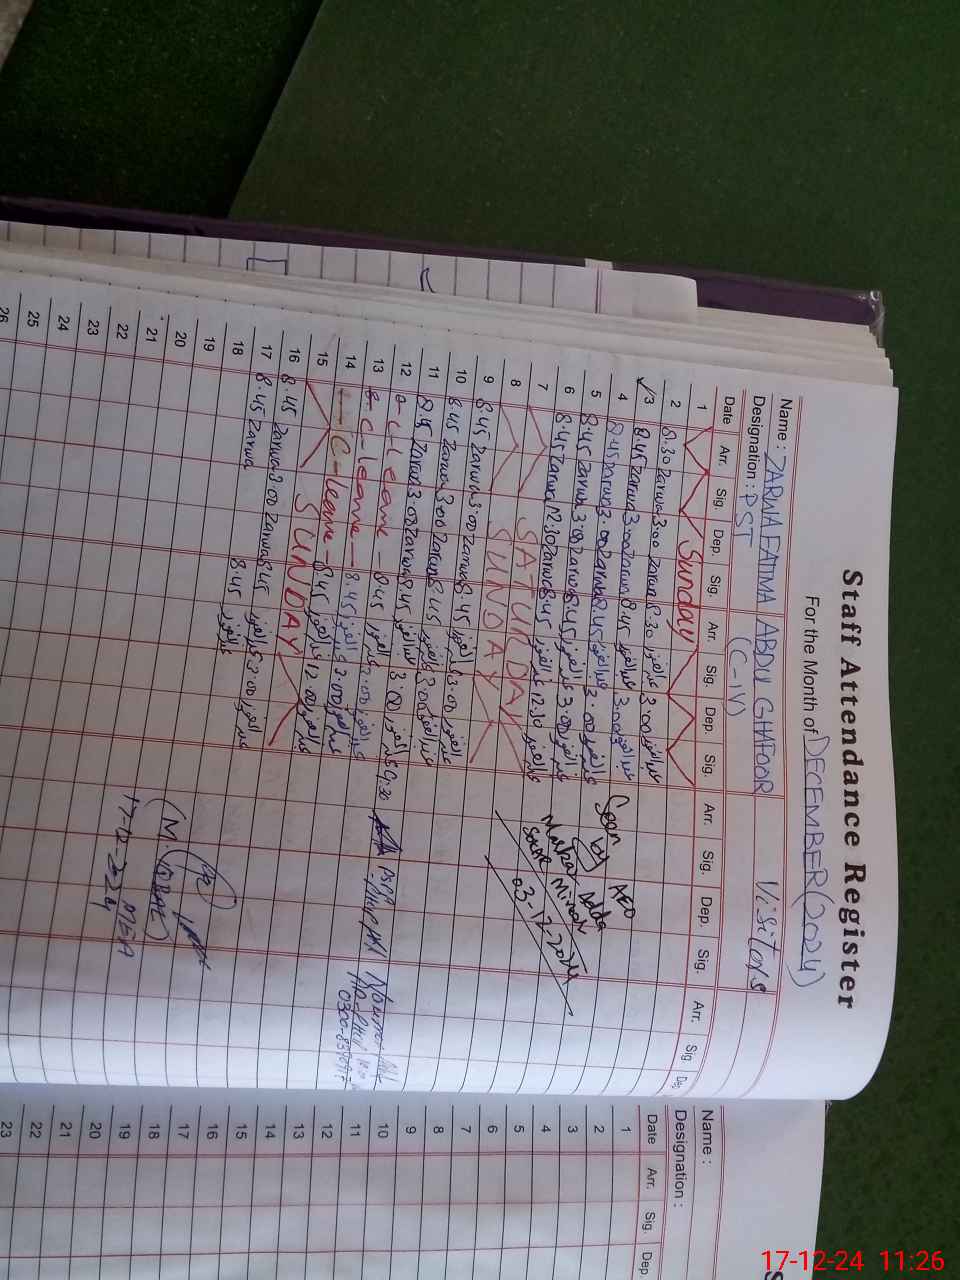 Staff Attendance Register
For the Month of DECEMBER (2024)
Name : ZARWA FATIMA ABDUL GHAFOOR Visitors
Designation : PST (C-IV)
Date Arr. Sig. Dep. Sig. Arr. Sig. Dep. Sig. Arr. Sig. Dep. Sig. Arr. Sig Dep
1 Sunday
2 8.30 Zarwa 3.00 Zarwa 8.30 عبدالغفور 3.00 عبدالغفور
3 8.45 Zarwa 3.00 Zarwa 8.45 عبدالغفور 3.00 عبدالغفور
4 8.45 Zarwa 3.00 Zarwa 8.45 عبدالغفور 3.00 عبدالغفور
5 8.45 Zarwa 3.00 Zarwa 8.45 عبدالغفور 3.00 عبدالغفور
6 8.45 Zarwa 12.30 Zarwa 8.45 عبدالغفور 12.30 عبدالغفور
7 SATURDAY
8 SUNDAY
9 8.45 Zarwa 3.00 Zarwa 8.45 عبدالغفور 3.00 عبدالغفور
10 8.45 Zarwa 3.00 Zarwa 8.45 عبدالغفور 3.00 عبدالغفور
11 8.45 Zarwa 3.00 Zarwa 8.45 عبدالغفور 3.00 عبدالغفور 9.30
12 C-leave 8.45 عبدالغفور 3.00 عبدالغفور
13 C-leave 8.45 عبدالغفور 3.00 عبدالغفور
14 C-leave 8.45 عبدالغفور 12.00 عبدالغفور
15 SUNDAY
16 8.45 Zarwa 3.00 Zarwa 8.45 عبدالغفور 3.00 عبدالغفور
17 8.45 Zarwa 8.45 عبدالغفور
18
19
20
21
22
23
24
25
26
Seen by AEO
Markaz Adda
03-12-2024
(M. IQBAL)
17-12-2024 MEA
Name :
Designation :
Date Arr. Sig. Dep
1
2
3
4
5
6
7
8
9
10
11
12
13
14
15
16
17
18
19
20
21
22
23
17-12-24 11:26